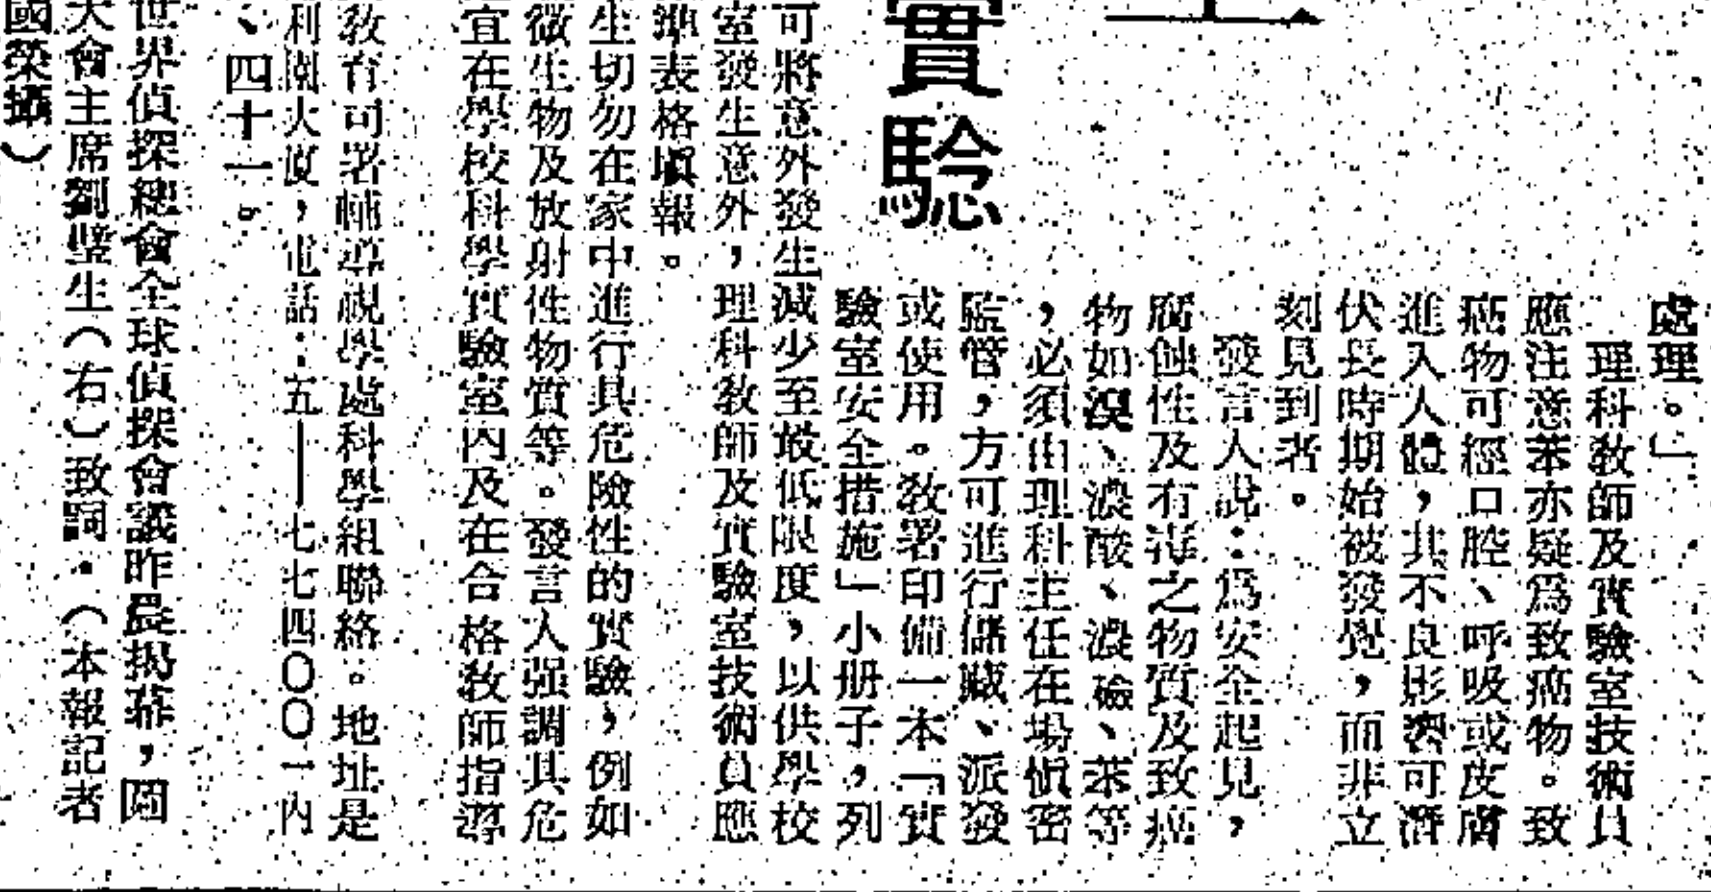 處理。」
理科敎師及實驗室技術員
應注意苯亦疑爲致癌物。致
癌物可經口腔、呼吸或皮膚
進入人體，其不良影響可潛
伏長時期始被發覺，而非立
刻見到者。
發言人說：爲安全起見，
腐蝕性及有毒之物質及致癌
物如溴、濃酸、濃鹼、苯等
，必須由理科主任在場愼密
監管，方可進行儲藏、派發
或使用。敎署印備一本「實
驗室安全措施」小册子，列
實驗
可將意外發生減少至最低限度，以供學校
室發生意外，理科敎師及實驗室技術員應
準表格塡報。
生切勿在家中進行具危險性的實驗，例如
微生物及放射性物質等。發言人强調具危
宜在學校科學實驗室內及在合格敎師指導
敎育司署輔導視學處科學組聯絡。地址是
利園大廈，電話：五——七七四〇〇一內
、四十一。
世界偵探總會全球偵探會議昨晨揭幕，圖
大會主席劉璧生（右）致詞。（本報記者
國榮攝）